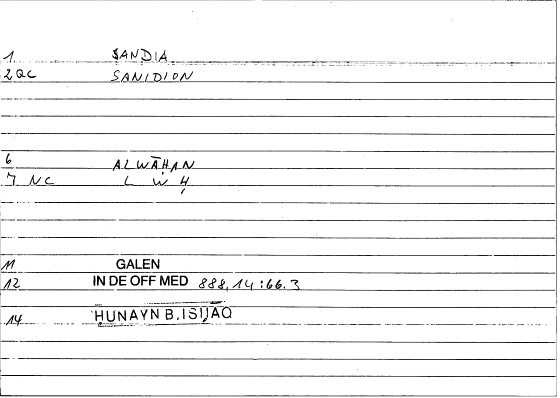 1 SANDIA
2 QC SANIDION
6 ALWĀḤAN
7 NC L W Ḥ
11 GALEN
12 IN DE OFF MED 888,14:66.3
14 ḤUNAYN B.ISḤĀQ